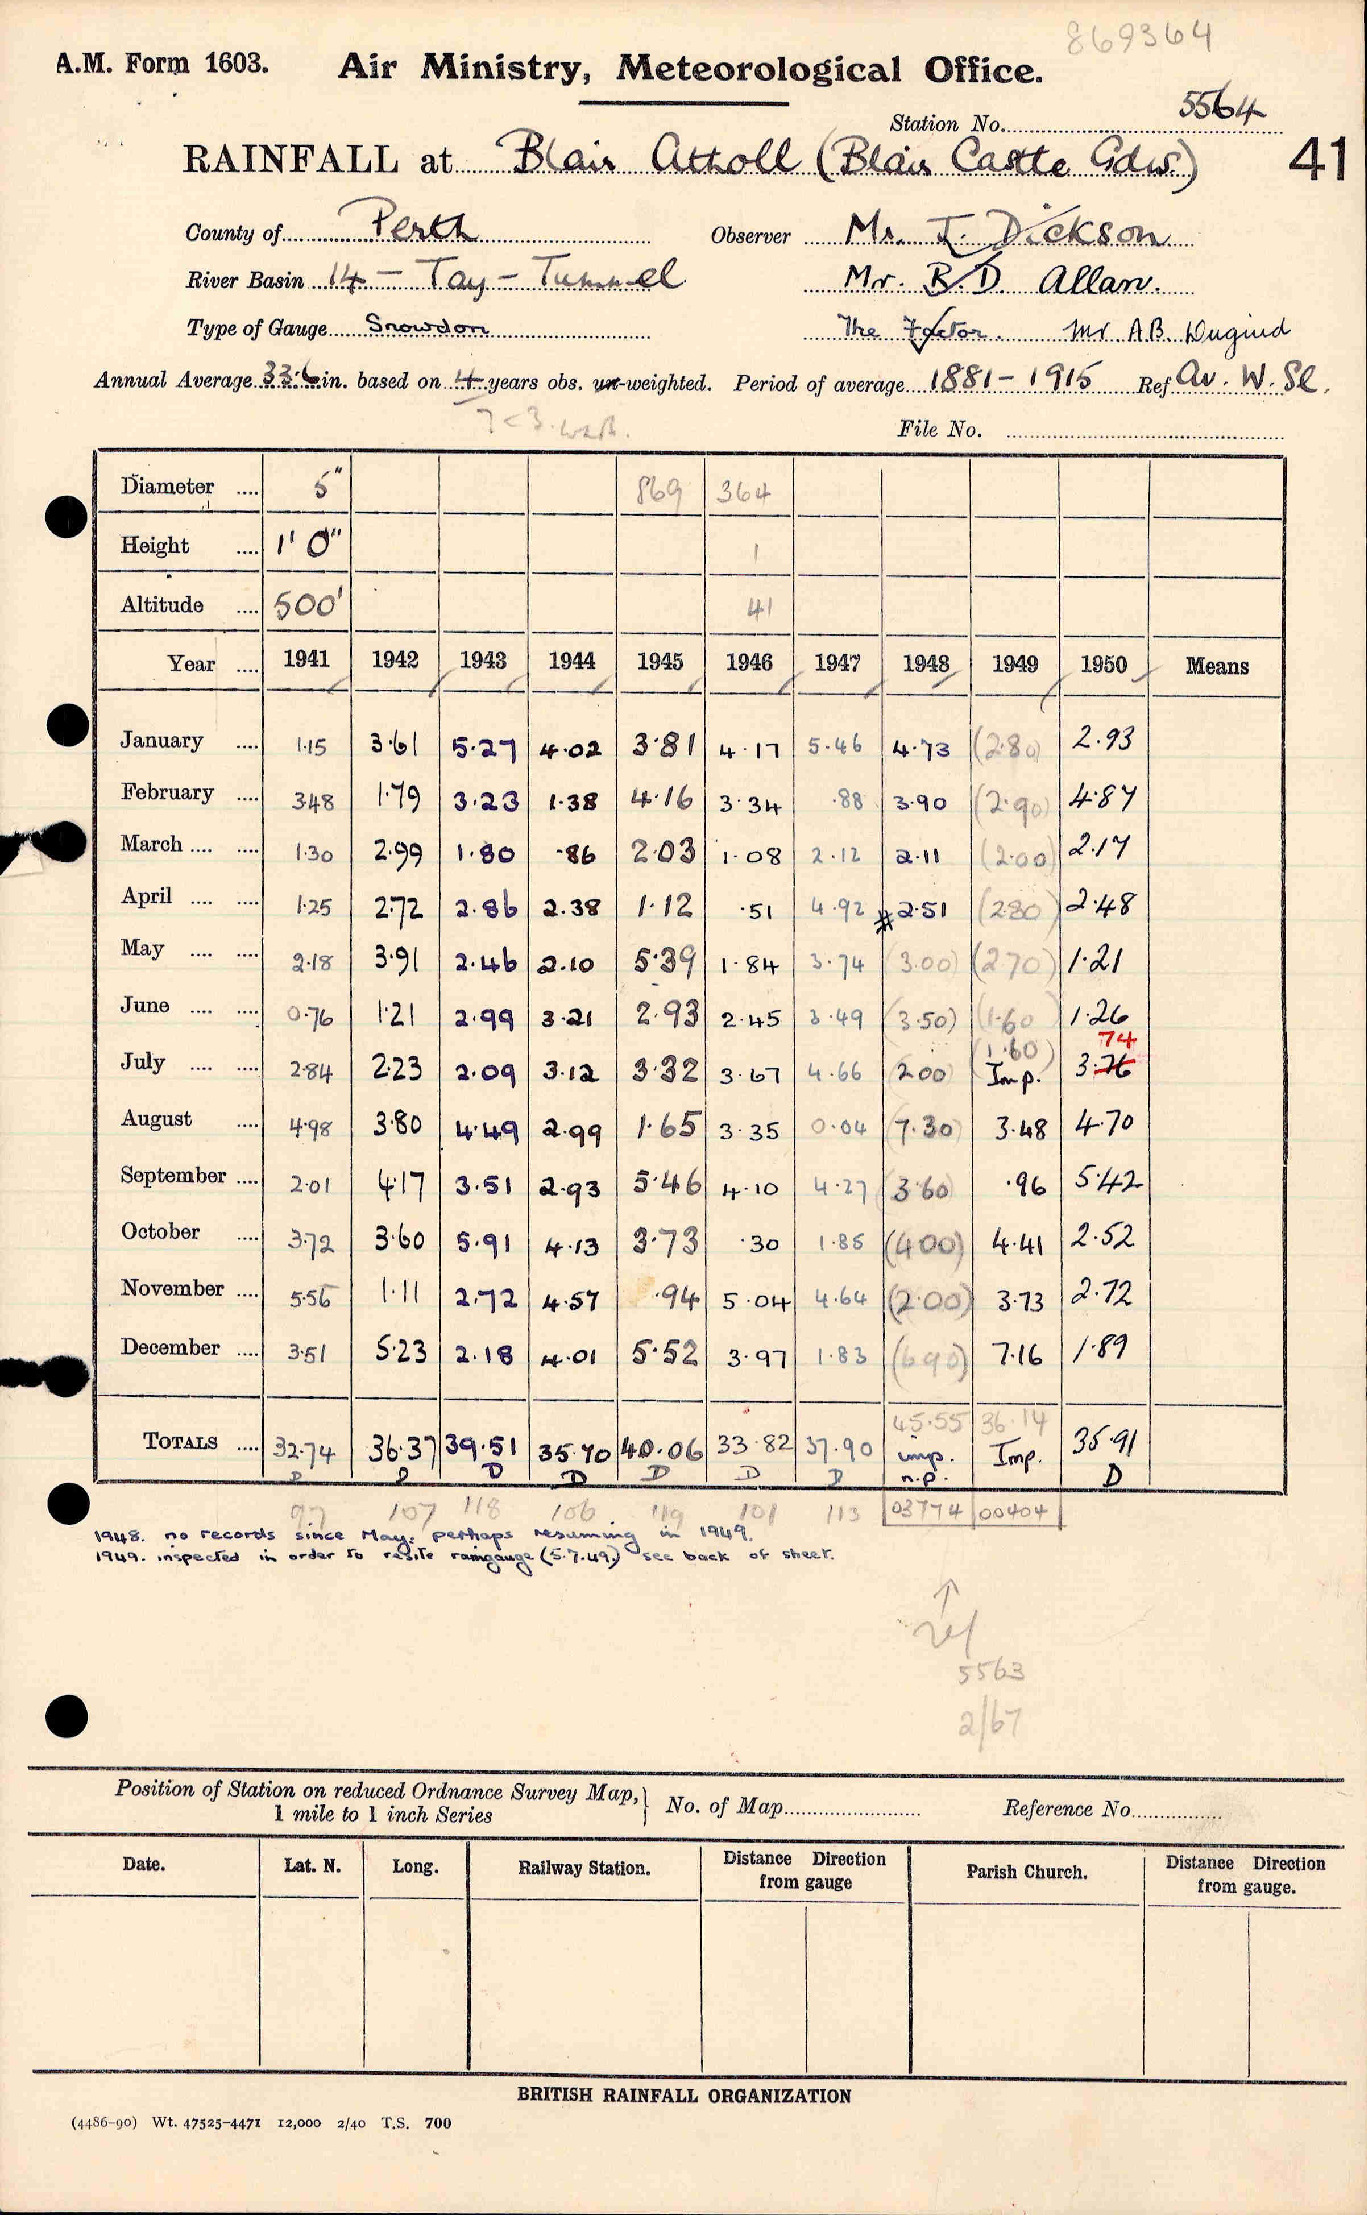 869364
A.M. Form 1603. Air Ministry, Meteorological Office.
Station No. 5564
RAINFALL at Blair Atholl (Blair Castle Gdns.) 41
County of Perth Observer Mr. J. Dickson
River Basin 14 - Tay - Tummel Mr. B.D. Allan.
Type of Gauge Snowdon The Factor. Mr A.B. Duguid
Annual Average 33.6 in. based on 4 years obs. un-weighted. Period of average 1881-1915 Ref Av. W. Sc.
File No.
Diameter 5" 869 364
Height 1' 0" 1
Altitude 500' 41
Year 1941 1942 1943 1944 1945 1946 1947 1948 1949 1950 Means
January 1.15 3.61 5.27 4.02 3.81 4.17 5.46 4.73 (2.80) 2.93
February 3.48 1.79 3.23 1.38 4.16 3.34 .88 3.90 (2.90) 4.87
March 1.30 2.99 1.80 .86 2.03 1.08 2.12 2.11 (2.00) 2.17
April 1.25 2.72 2.86 2.38 1.12 .51 4.92 #2.51 (2.80) 2.48
May 2.18 3.91 2.46 2.10 5.39 1.84 3.74 (3.00) (2.70) 1.21
June 0.76 1.21 2.99 3.21 2.93 2.45 3.49 (3.50) (1.60) 1.26
(1.60) 74
July 2.84 2.23 2.09 3.12 3.32 3.67 4.66 (2.00) Imp. 3.76
August 4.98 3.80 4.49 2.99 1.65 3.35 0.04 (7.30) 3.48 4.70
September 2.01 4.17 3.51 2.93 5.46 4.10 4.27 (3.60) .96 5.42
October 3.72 3.60 5.91 4.13 3.73 .30 1.85 (4.00) 4.41 2.52
November 5.56 1.11 2.72 4.57 .94 5.04 4.64 (2.00) 3.73 2.72
December 3.51 5.23 2.18 4.01 5.52 3.97 1.83 (6.90) 7.16 1.89
45.55 36.14
TOTALS 32.74 36.37 39.51 35.70 40.06 33.82 37.90 imp. Imp. 35.91
D D D D D D D n.p. D
97 107 118 106 119 101 113 03774 00404
1948. no records since May. perhaps resuming in 1949.
1949. inspected in order to resite raingauge (5.7.49.) see back of sheet.
5563
2/67
Position of Station on reduced Ordnance Survey Map, 1 mile to 1 inch Series } No. of Map Reference No.
Date. Lat. N. Long. Railway Station. Distance Direction from gauge Parish Church. Distance Direction from gauge.
BRITISH RAINFALL ORGANIZATION
(4486-90) Wt. 47525-4471 12,000 2/40 T.S. 700